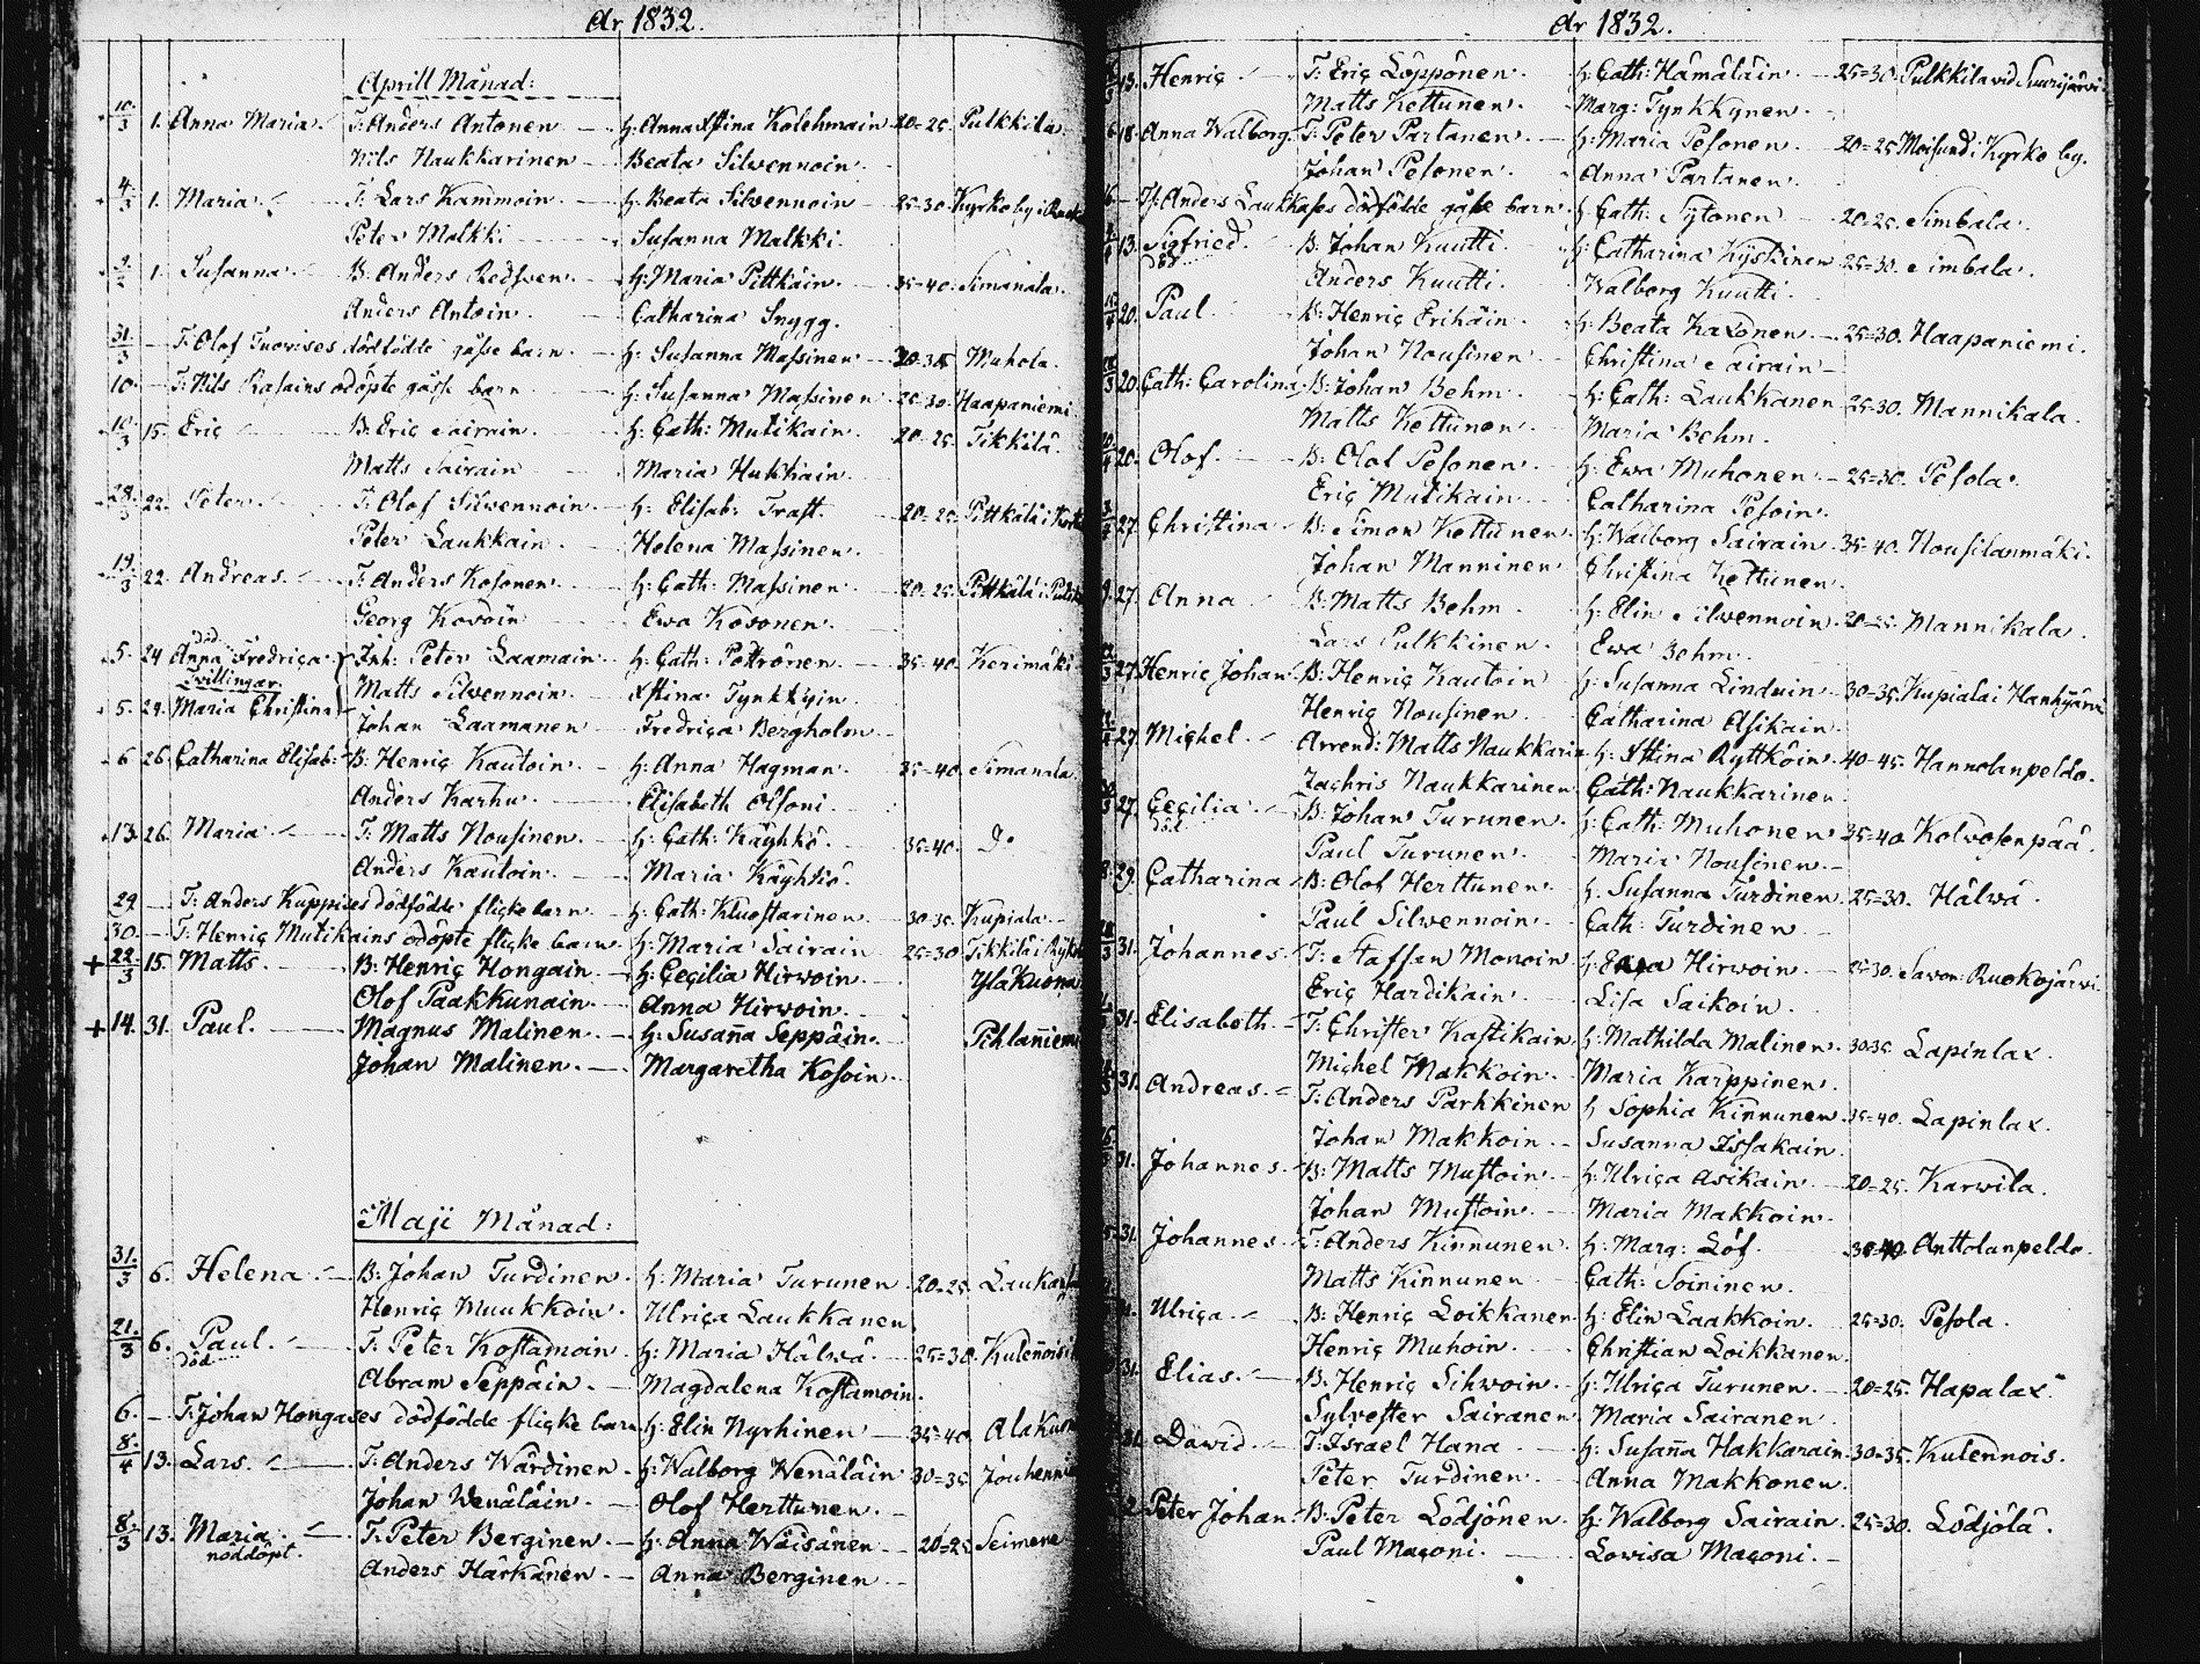 År 1832.
Aprill Månad:
10./3 1. Anna Maria. T. Anders Antonen. h: Anna Xstina Kolehmain 20=25. Pulkkila.
Nils Naukkarinen Beata Silvennoin.
4./3 1. Maria. T. Lars Kammoin. h: Beata Silvennoin 25=30. Kyrkoby i
Peter Malkki Susanna Malkki.
1. Susanna. B. Anders Redsven. h: Maria Pittkäin. 35=40. Simanala.
Anders Antoin. Catharina Snygg.
31./3 — T. Olof Tuovises dödfödde gåsse barn. h: Susanna Massinen Muhola.
10. — T. Nils Rasains odöpte gåsse barn h: Susanna Massinen 25=30. Haapaniemi.
10./3 15. Eric B. Eric Sairain. h: Cath: Mutikain. 20=25. Tikkilä.
Matts Sairain Maria Hukkain.
28./3 22. Peter. T. Olof Silvennoin. h: Elisab: Trast. 20=25. Pittkälä i
Peter Laukkain. Helena Massinen.
19./3 22. Andreas. T. Anders Kosonen. h: Cath: Massinen. 20=25. Pittkälä i
Georg Kovoin Ewa Kosonen.
död.
5. 24 Anna Fredrica. Inh: Peter Laamain. h: Cath: Pettrönen. 35=40. Kerimäki
Tvillingar. Matts Silvennoin. Xstina Tynkkyin
5. 24. Maria Christina Johan Laamanen Fredrica Bergholm
6 26. Catharina Elisab: B. Henric Kautoin. h: Anna Hagman. 35=40. Simanala
Anders Karhu. Elisabeth Olsoni.
13. 26. Maria. T: Matts Nousinen. h: Cath: Käyhkö. 35=40. Do
Anders Kautoin. Maria Käyhkö.
29. — T: Anders Kuppises dödfödde flicke barn h: Cath: Kluostarinen. 30=35. Kupiala.
30. — T: Henric Mutikains odöpte flicke barn. h: Maria Sairain 25=30 Tikkilä i
+ 22./3 15. Matts. B: Henric Hongain. h: Cecilia Hirvoin. YläKuona
Olof Paakkunain. Anna Hirvoin.
+ 14. 31. Paul. Magnus Malinen. h: Susanna Seppäin. Pihlanniemi
Johan Malinen. Margaretha Kosoin.
Maji Månad:
31./3 6. Helena. B: Johan Turdinen. h: Maria Turunen. 20=25.
Henric Muukkoin. Ulrica Laukkanen
21./3 6. Paul. T: Peter Kostamoin. h: Maria Hälwä. 25=30.
död. Abram Seppäin. Magdalena Kostamoin.
6. — T: Johan Hongases dödfödde flicke barn h: Elin Nyrhinen 35=40.
8./4 13. Lars. T: Anders Wärdinen. h: Walborg Wenäläin 30=35.
Johan Wenäläin. Olof Herttunen.
8./3 13. Maria. T: Peter Berginen. h: Anna Wäisänen 20=25.
nöddöpt. Anders Härkänen. Anna Berginen
År 1832.
13. Henric T: Eric Löppönen. h: Cath: Hämäläin. 25=30. Pulkkila vid Suurijärvi.
Matts Kettunen. Marg: Tynkkynen.
18. Anna Walborg. T: Peter Partanen. h: Maria Pesonen. 20=25 Moisund i Kyrko by.
Johan Pesonen. Anna Partanen.
— If: Anders Laukkases dödfödde gåsse barn. h: Cath: Sytonen 20=25. Simbala.
13. Sigfried. B: Johan Kuutti. h: Catharina Kyskinen 25=30. Simbala.
död Anders Kuutti. Walborg Kuutti.
20. Paul B: Henric Erikäin. h: Beata Kaxonen. 25=30. Haapaniemi.
Johan Nousinen Christina Sairain
20. Cath: Carolina B: Johan Behm. h: Cath: Laukkanen 25=30. Mannikala.
Matts Kettunen. Maria Behm.
20. Olof. B: Olof Pesonen. h: Ewa Muhonen. 25=30. Pesola.
Eric Mutikain Catharina Pesoin.
27. Christina B: Simon Kettunen. h: Walborg Sairain. 35=40. Nousilanmäki.
Johan Manninen Christina Kettunen.
27. Anna B: Matts Behm. h: Elin Silvennoin. 20=25. Mannikala.
Lars Pulkkinen. Ewa Behm.
27. Henric Johan B: Henric Kautoin h: Susanna Linduin 30=35. Kupiala i Hankijärvi
Henric Nousinen Catharina Asikain.
27. Michel Arrend: Matts Naukkarin h: Xstina Ryttköin. 40=45. Hannolanpeldo.
Zachris Naukkarinen. Cath: Naukkarinen
27. Cecilia B: Johan Turunen. h: Cath: Muhonen 35=40 Kolvosenpää.
död Paul Turunen. Maria Nousinen.
29. Catharina B: Olof Herttunen. h: Susanna Turdinen. 25=30. Hälwä.
Paul Silvennoin. Cath: Turdinen
31. Johannes. T: Staffan Monoin h: Hirvoin. 25=30. Savon: Ruokojärvi.
Eric Hardikain. Lisa Saikoin.
31. Elisabeth. T: Christer Kastikain h: Mathilda Malinen. 30=35 Lapinlax.
Michel Makkoin. Maria Karppinen.
31. Andreas. T: Anders Parkkinen h: Sophia Kinnunen. 35=40. Lapinlax.
Johan Makkoin. Susanna Issakain.
31. Johannes. B: Matts Mustoin. h: Ulrica Asikain. 20=25. Karwila.
Johan Mustoin. Maria Makkoin.
31. Johannes. T: Anders Kinnunen. h: Marg: Löf. Anttolanpeldo.
Matts Kinnunen Cath: Soininen.
Ulrica B: Henric Loikkanen. h: Elin Laakkoin. 25=30. Pesola.
Henric Muhoin. Christian Loikkanen.
31. Elias. B: Henric Sihvoin. h: Ulrica Turunen. 20=25. Hapalax.
Sylvester Sairanen Maria Sairanen.
31. Dawid. T: Israel Hana h: Susanna Hakkarain. 30=35. Kulennois.
Peter Turdinen. Anna Makkonen.
Peter Johan. B: Peter Lödjönen. h: Walborg Sairain. 25=30. Lödjölä.
Paul Maconi. Lovisa Maconi.